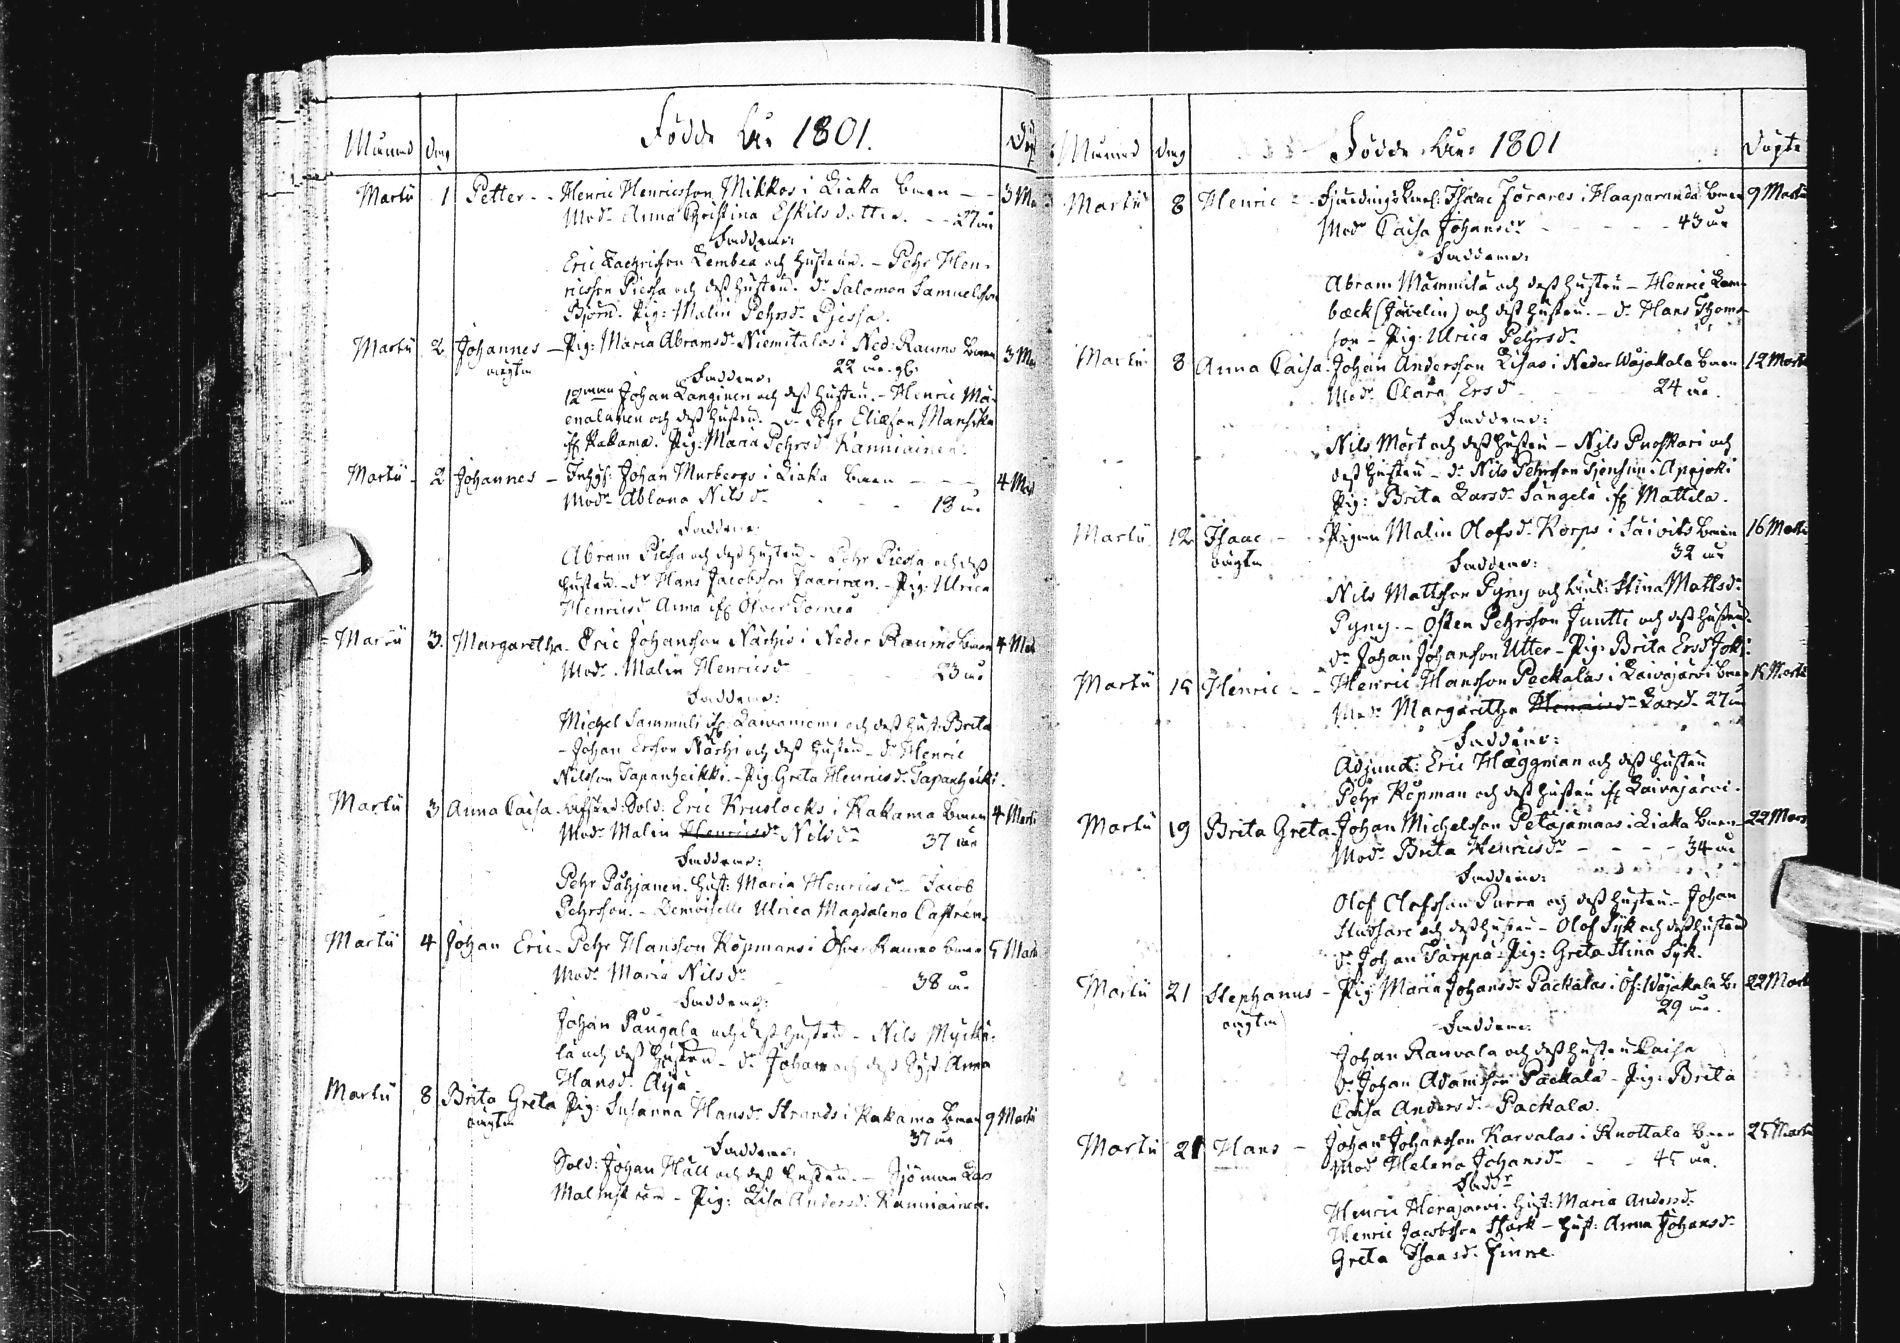 Månad dag Födde År 1801. Döpt
Martii 1 Petter - - Henric Henricsson Mikkos i Liaka Barn - - 3 Ma
Modr Anna Christina Eskilsdotter. - - 27 år
Faddrar:
Eric Zachrisson Lembea och hustru. - Pehr Hen-
ricsson Piessa och dess hustru. Dr Salomon Samuelsson
Björn. Pig: Malin Pehrsdr Piessa.
Martii 2 Johannes - Pig: Maria Abramsdr Niemitalos i Ned: Raumo Barn 3 Ma
oägta 22 år
Faddrar:
12man Johan Langinen och dess hustru. - Henric Mä-
enalanen och dess hustru. - Dr Pehr Eliæson Mansikka
if Kakama. Pig: Maria Pehrsdr Kanniainen.
Martii 2 Johannes - Inhys: Johan Murbergs i Liaka Barn - - - 4 Mar
Modr Ablona Nilsdr - - 18 år
Faddrar:
Abram Piessa och dess hustru - Pehr Piessa och dess
hustru. - Dr Hans Jacobsson Jaariran. - Pig: Ulrica
Henricsdr Anna if Öfver Torneå
Martii 3. Margaretha - Eric Johansson Närhis i Neder Raumo Barn 4 Mar
Modr Malin Henricsdr 23 år
Faddrar:
Michel Sammuli if Laivaniemi och dess hust: Brita
- Johan Ersson Närhi och dess hustru - Dr Henric
Nilsson Tapanheikki. - Pig: Greta Henricsdr Tapanheikki.
Martii 3 Anna Caisa - Afsked: Sold: Eric Kruslocks i Kakama Barn 4 Martii
Modr Malin Henricsdr Nilsdr 37 år
Faddrar:
Pehr Pahjanen. Hust: Maria Henricsdr - Jacob
Pehrsson. - Demoiselle Ulrica Magdalena Castrén.
Martii 4 Johan Eric - Pehr Hansson Köpmans i Öfver Raumo Barn 5 Mart
Modr Maria Nilsdr 38 år
Faddrar:
Johan Pängala och dess hustru - Nils Mycku-
la och dess hustru - Dr Johan och dess Syst. Anna
Hansdr Aijä.
Martii 8 Brita Greta Pig: Susanna Hansdr Strands i Kakama Barn 9 Martii
oägta 37 år
Faddrar:
Sold: Johan Häll och dess hustru. - Sjöman Lars
Malmström - Pig: Lisa Andersdr Kanniainen.
Månad dag Födde År 1801 Döpte
Martii 8 Henric - Fjerdings Karl: Isaac Förares i Haaparanda Barn 9 Martii
Modr Caisa Johansdr - - - - - 43 år
Faddrar:
Abram Mämmilä och dess hustru - Henric Lam-
bæck (Javelin) och dess hustru. - Dr Hans Thoms-
son - Pig: Ulrica Pehrsdr
Martii 8 Anna Caisa - Johan Andersson Lisas i Neder Wojakala Barn 12 Marti
Modr Clara Ersdr 24 år.
Faddrar:
Nils Mört och dess hustru - Nils Puoskari och
dess hustru - Dr Nils Pehrsson i Arpojoki
Pig: Brita Larsdr Sangela if Mattila.
Martii 12 Isaac - Pigan Malin Olofsdr Korps i Saivits Barn 16 Marti
oägta 32 år
Faddrar:
Nils Mattsson Pyny och Enk: Stina Mattsdr
Pyny. - Östen Pehrsson Juntti och dess hustru.
Dr Johan Johansson Utter - Pig: Brita Ersdr Joki.
Martii 15 Henric - - Henric Hansson Peckalas i Laivajärvi Barn 15 Marti
Modr Margaretha Henricsdr Larsdr 27 år
Faddrar:
Adjunct: Eric Hæggman och dess hustru
Pehr Köpman och dess hustru if Laivajärvi.
Martii 19 Brita Greta - Johan Michelsson Petäjämaas i Liaka Barn - 22 Mars
Modr Brita Henricsdr - - - - 34 år
Faddrar:
Olof Olofsson Purra och dess hustru - Johan
Stusare och dess hustru - Olof Syk och dess hustru
Dr Johan Tarppa - Pig: Greta Stina Syk.
Martii 21 Stephanus - Pig: Maria Johansdr Packalas i Öf: Wojakala B: 22 Marti
oägta 29 år.
Faddrar:
Johan Ranvala och dess hustru Caisa
Dr Johan Adamsson Packala - Pig: Brita
Caisa Andersdr Packala.
Martii 21 Hans - Johan Johansson Karvalas i Knottala Barn 25 Martii
Modr Helena Johansdr - - 45 år.
Faddr
Henric Herajärvi. Hust: Maria Andersdr
Henric Jacobsson Stark - hust: Anna Johansdr
Greta Isaacsdr Finne.